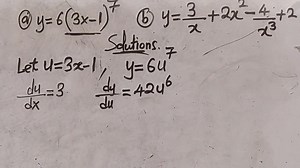 ⓐ y=6(3x-1)⁷ ⓑ y=3/x+2x²-4/x³+2
Solutions.
Let u=3x-1, y=6u⁷
du/dx=3 dy/du=42u⁶